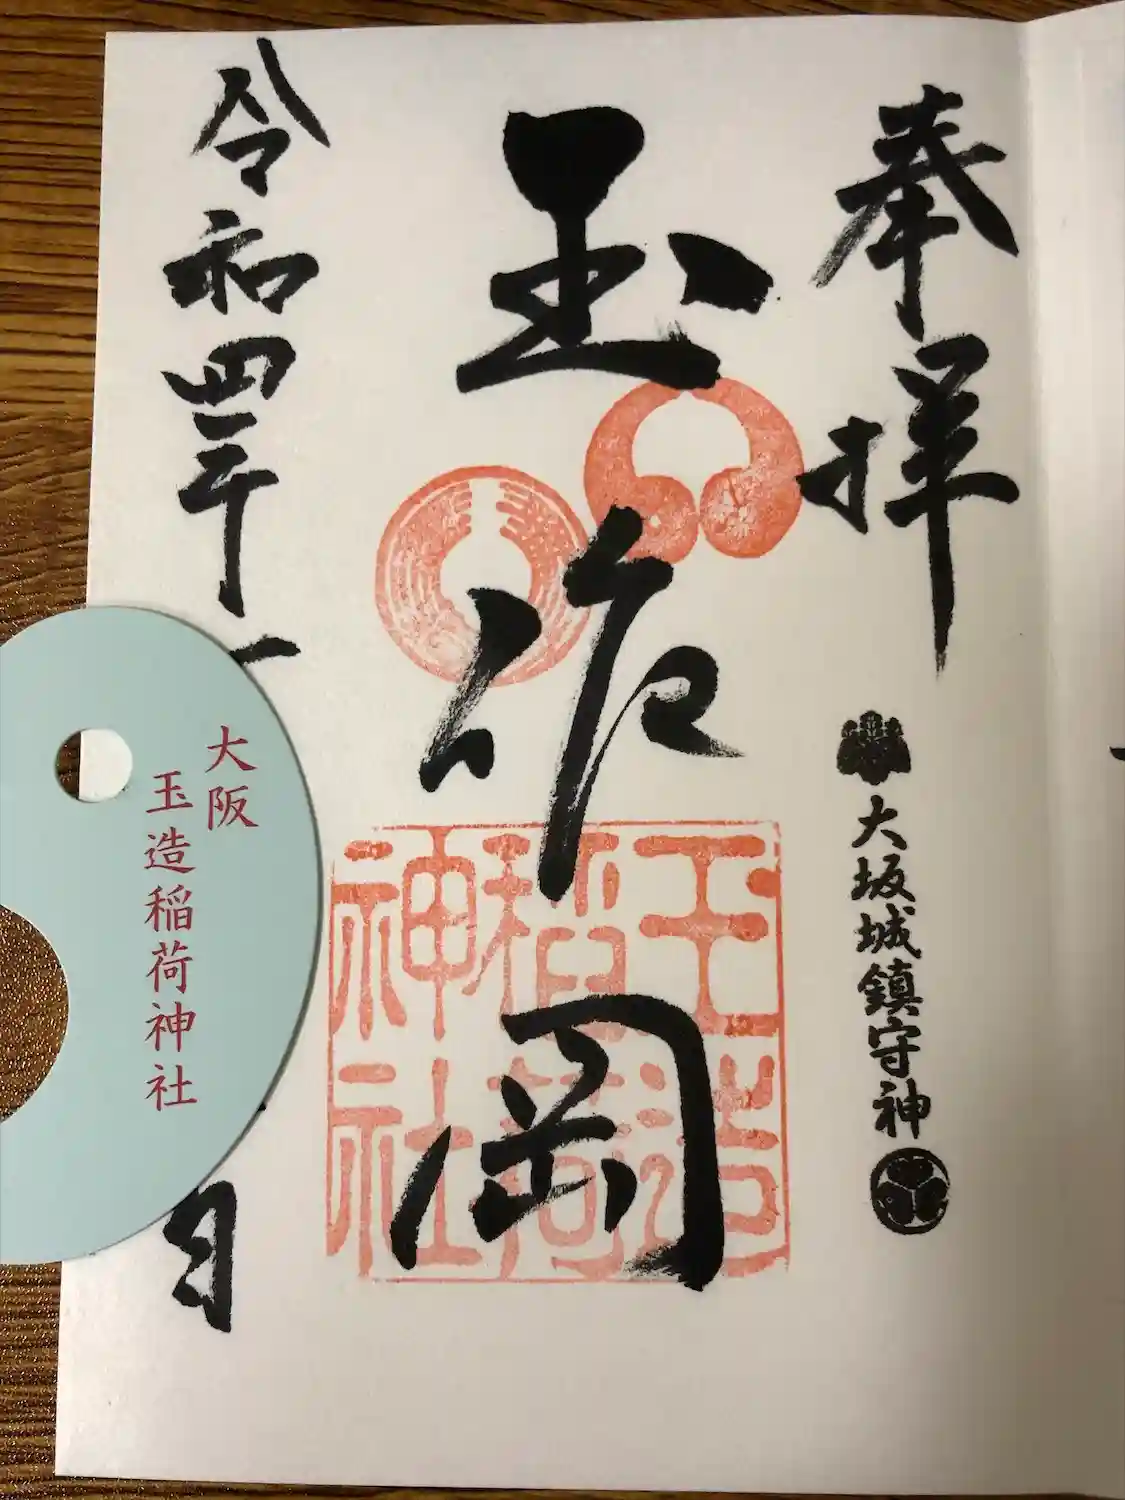 奉拝
大坂城鎮守神
玉作岡
玉造
稲荷
神社
令和四年
日
大阪
玉造稲荷神社